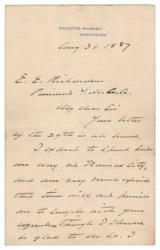 EXECUTIVE MANSION,
WASHINGTON.
Aug 31. 1887
E. E. Richardson
My dear Sir
Your letter
of the 29th is at hand.
I expect to spend but
one day at Kansas City,
and am very much afraid
that time will not permit
me to comply with your
request though I should
be glad to do so. I